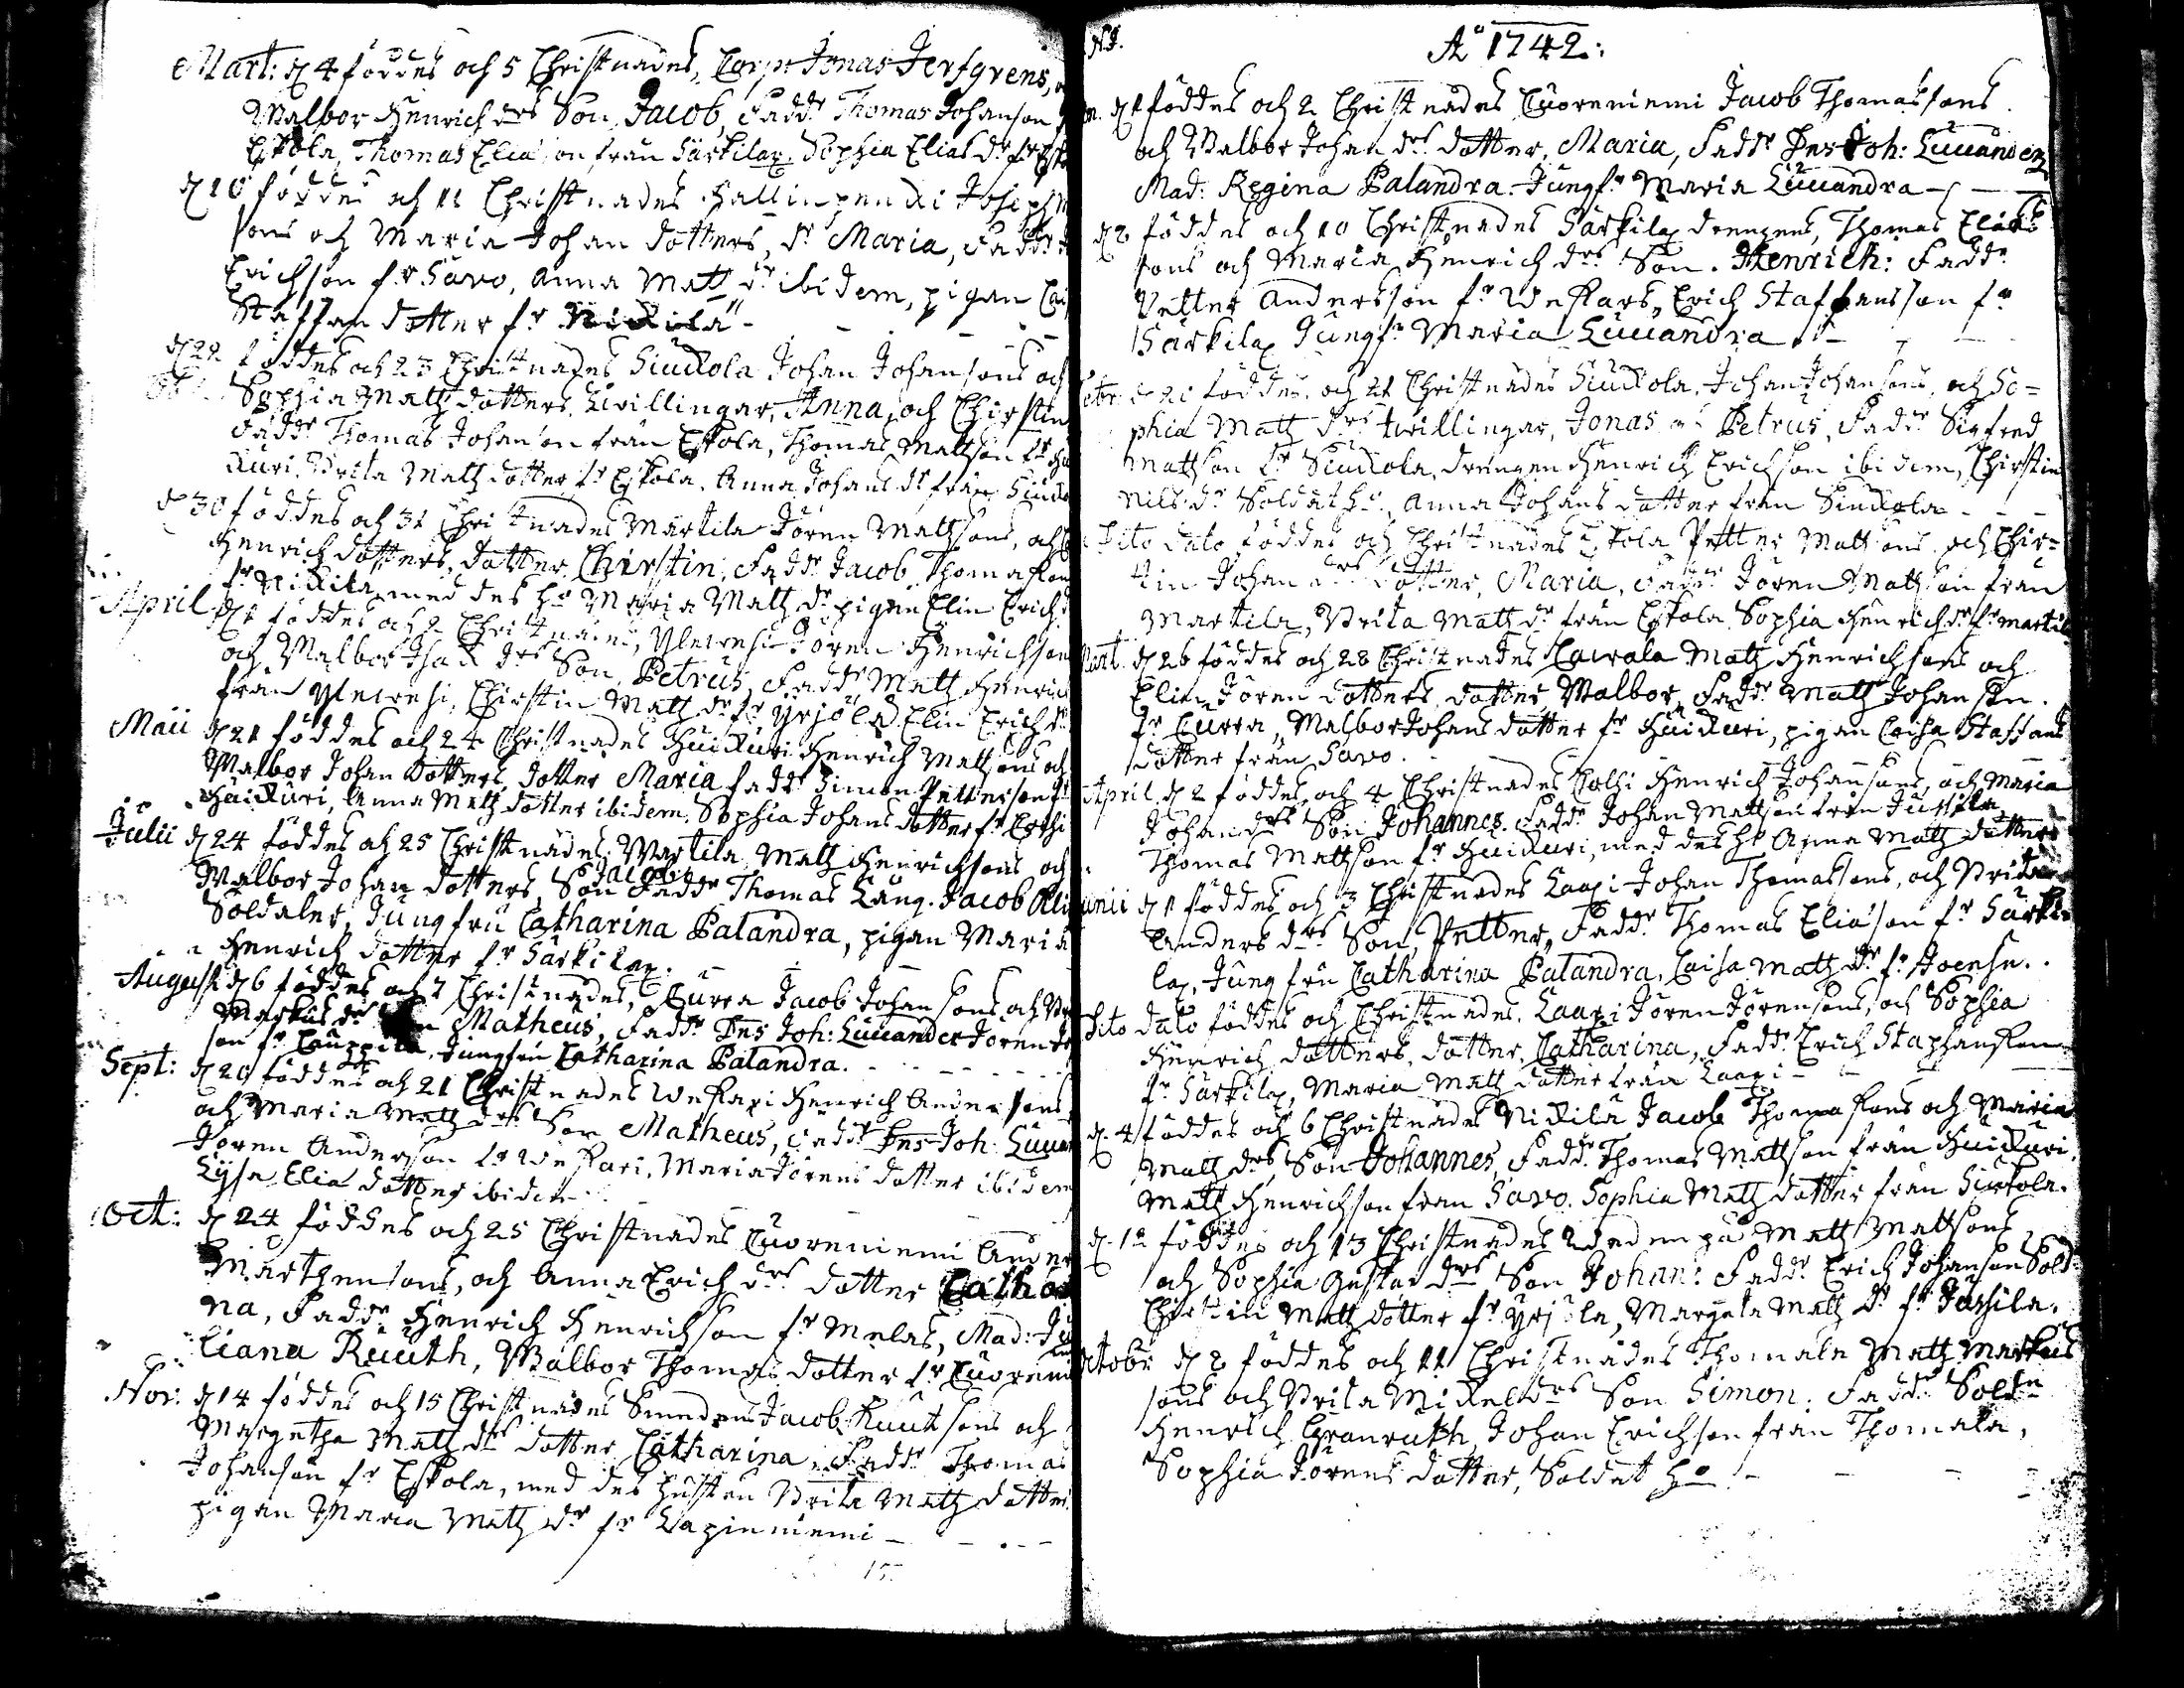 Mart: d 4 föddes och 5 Christnades, Corp: Jonas Jerfgrens,
Walbor Henrich drs Son Jacob, Fadd: Thomas Johanson
Eskola, Thomas Eliason från Särkilax. Sophia Elias dr fr
d 10 föddes och 11 Christnades Hallinpendi Joseph
sons och Maria Johan dotters, dr Maria, Fadd:
Erichson fr Savo, Anna Matt dr ibidem, pigan
Staffan dotter fr Nickilä
d 22 föddes och 23 Christnades Siuckola Johan Johansons och
Sophia Matz dotters, twillingar, Anna, och Chirstin
Fadd: Thomas Johanson från Eskola, Thomas Mattson fr
kuri, Brita Matz dotter fr Eskola. Anna Johans dr från
d 30 föddes och 31 Christnades Martila Jören Mattsons, och
Henrich dotters, dotter Chirstin, Fadd: Jacob Thomasson
fr Nickila, med des ho Maria Matz dr pigan Elin Erich
April d 1 föddes och 2 Christnades, Ylewesi Jören Henrichson
och Walbor Johan drs Son, Petrus, Fadd: Matz Henric
från Ylewesi, Chirstin Matz dr fr Yrjölä Elin Erich dr
Maii d 21 föddes och 24 Christnades Huickuri Henrich Mattsons och
Walbor Johan dotters, dotter Maria Fadd: Simon Petterson fr
Huickuri, Anna Matz dotter ibidem. Sophia Johans dotter fr
Julii d 24 föddes och 25 Christnades, Martila Matz Henrichsons och
Walbor Johan dotters, Son Jacob, Fadd: Thomas Lång. Jacob
Soldater, Jungfru Catharina Palandra, pigan Maria
Henrich dotter fr Särkilax.
August d 6 föddes och 7 Christnades, Curra Jacob Johansons och
Markus dr Matheus, Fadd: Dns Joh: Lucander Jören
son fr Cauppila, Jungfru Catharina Palandra.
Sept: d 20 föddes och 21 Christnades Weskari Henrich Andersons
och Maria Matz drs Son Matheus, Fadd: Dns Joh: Lucan
Jören Anderson fr Weskari, Maria Jörens dotter ibidem
Lysa Elia dotter ibidem
Oct: d 24 föddes och 25 Christnades Cuoreniemi Ander
Mårthensons, och Anna Erich drs dotter Catha
na, Fadd: Henrich Henrichson fr Melas, Mad: Ju
liana Ruuth, Walbor Thomas dotter fr Cuoren
Nov: d 14 föddes och 15 Christnades Smedens Jacob Kuut sons och
Margetha Matz drs dotter Catharina, Fadd: Thomas
Johanson fr Eskola, med des hustru Brita Matz dotter
pigan Maria Matz dr fr Lapinniemi
15
N.J.
Ao 1742:
d 1 föddes och 2 Christnades Cuoreniemi Jacob Thomassons
och Walbor Johan drs dotter, Maria, Fadd: Dns Joh: Lucander
Mad: Regina Palandra. Jungfr Maria Lucandra
d 2 föddes och 10 Christnades Särkilax drengens, Thomas Elias
sons och Maria Henrich drs Son. Henrich: Fadd:
Petter Andersson fr Weskars, Erich Staffansson fr
Särkilax Jungfr Maria Lucandra
d 21 föddes, och 21 Christnades Siuckola, Johan Johansons, och So=
phia Matz drs twillingar, Jonas och Petrus, Fadd: Sigfred
Mattson fr Siuckola, drengen Henrich Erichson ibidem, Chirstin
Nils dr Soldat ho, Anna Johans dotter från Siuckola
Dito dato föddes och Christnades Eskola Petter Mattsons och Chir=
stin Johan drs dotter, Maria, Fadd: Jören Matzson från
Martila, Brita Matz dr från Eskola Sophia Henrich dr fr martila
Mart d 26 föddes och 28 Christnades Caurala Matz Henrichsons och
Elin Jören dotters, dotter, Walbor, Fadd: Matz Johanson.
fr Curra, Walbor Johans dotter fr Huickuri, pigan Caisa Staffans
dotter från Savo.
April d 2 föddes och 4 Christnades Henrich Johansons, och Maria
Johan drs Son Johannes. Fadd: Johan Mattson från Jussila
Thomas Mattson fr Huickuri, med des ho Anna Matz dotter
Junii d 1 föddes och 3 Christnades Laaxi Johan Thomassons, och Brita
Anders drs Son, Petter, Fadd: Thomas Eliason fr Särki
lax, Jungfru Catharina Palandra, Caisa Matz dr fr
Dito dato föddes och Christnades. Laaxi Jören Jörensons, och Sophia
Henrich dotters, dotter, Catharina, Fadd: Erich Staphansson
fr Särkilax, Maria Matz dotter från Laaxi
d. 4 föddes och 6 Christnades Nickilä Jacob Thomassons och Maria
Matz drs Son Johannes, Fadd: Thomas Mattson från Huickuri.
Matz Henrichson från Savo. Sophia Matz dotter från Siuckola.
d. 12 föddes och 13 Christnades på Matz Mattsons
och Sophia Gustav drs Son Johan: Fadd: Erich Johanson Sold:
Chirstin Matz dotter fr Yrjölä, Margeta Matz dr fr Jussila.
Octobr d 2 föddes och 11 Christnades Thomala Matz Markus
sons och Brita Mickel drs Son Simon. Fadd: Soldn
Henrich Granruth, Johan Erichson från Thomala,
Sophia Jörens dotter, Soldat ho